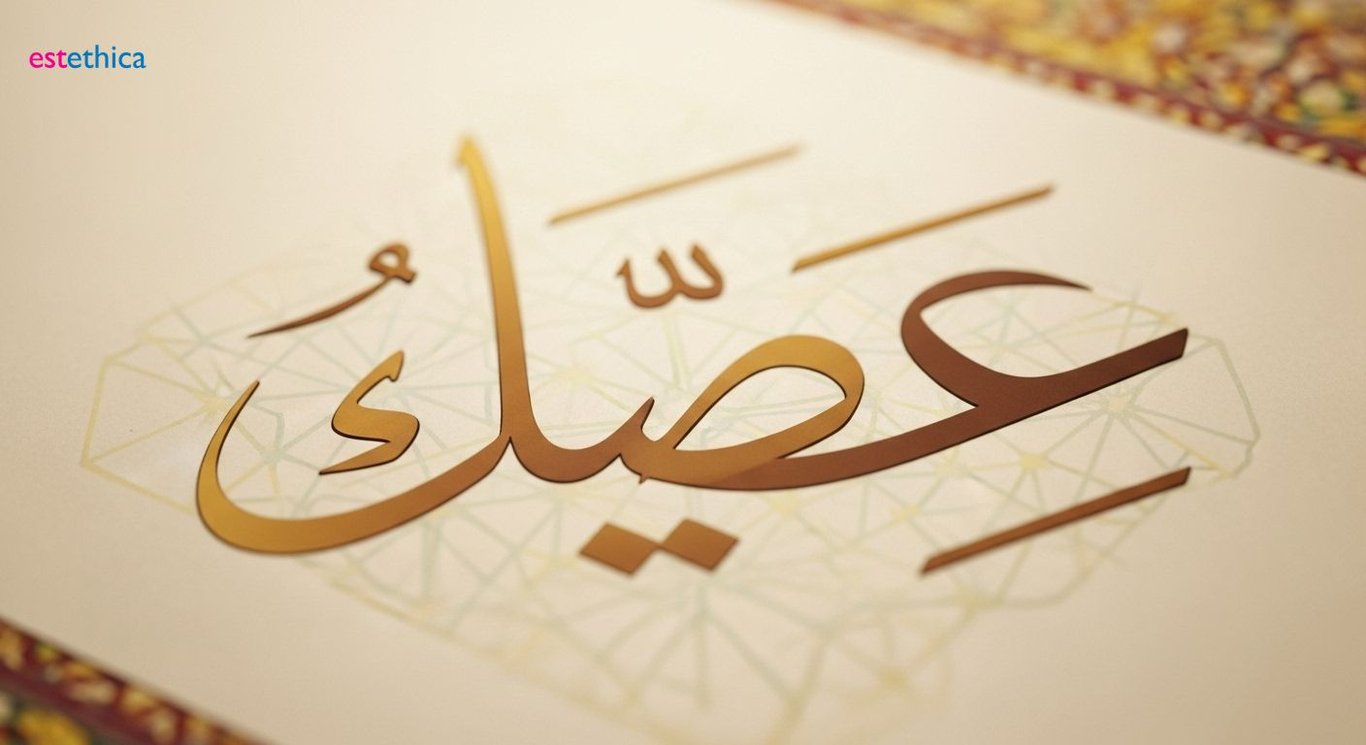 estethica
عِصَيَّلكُ